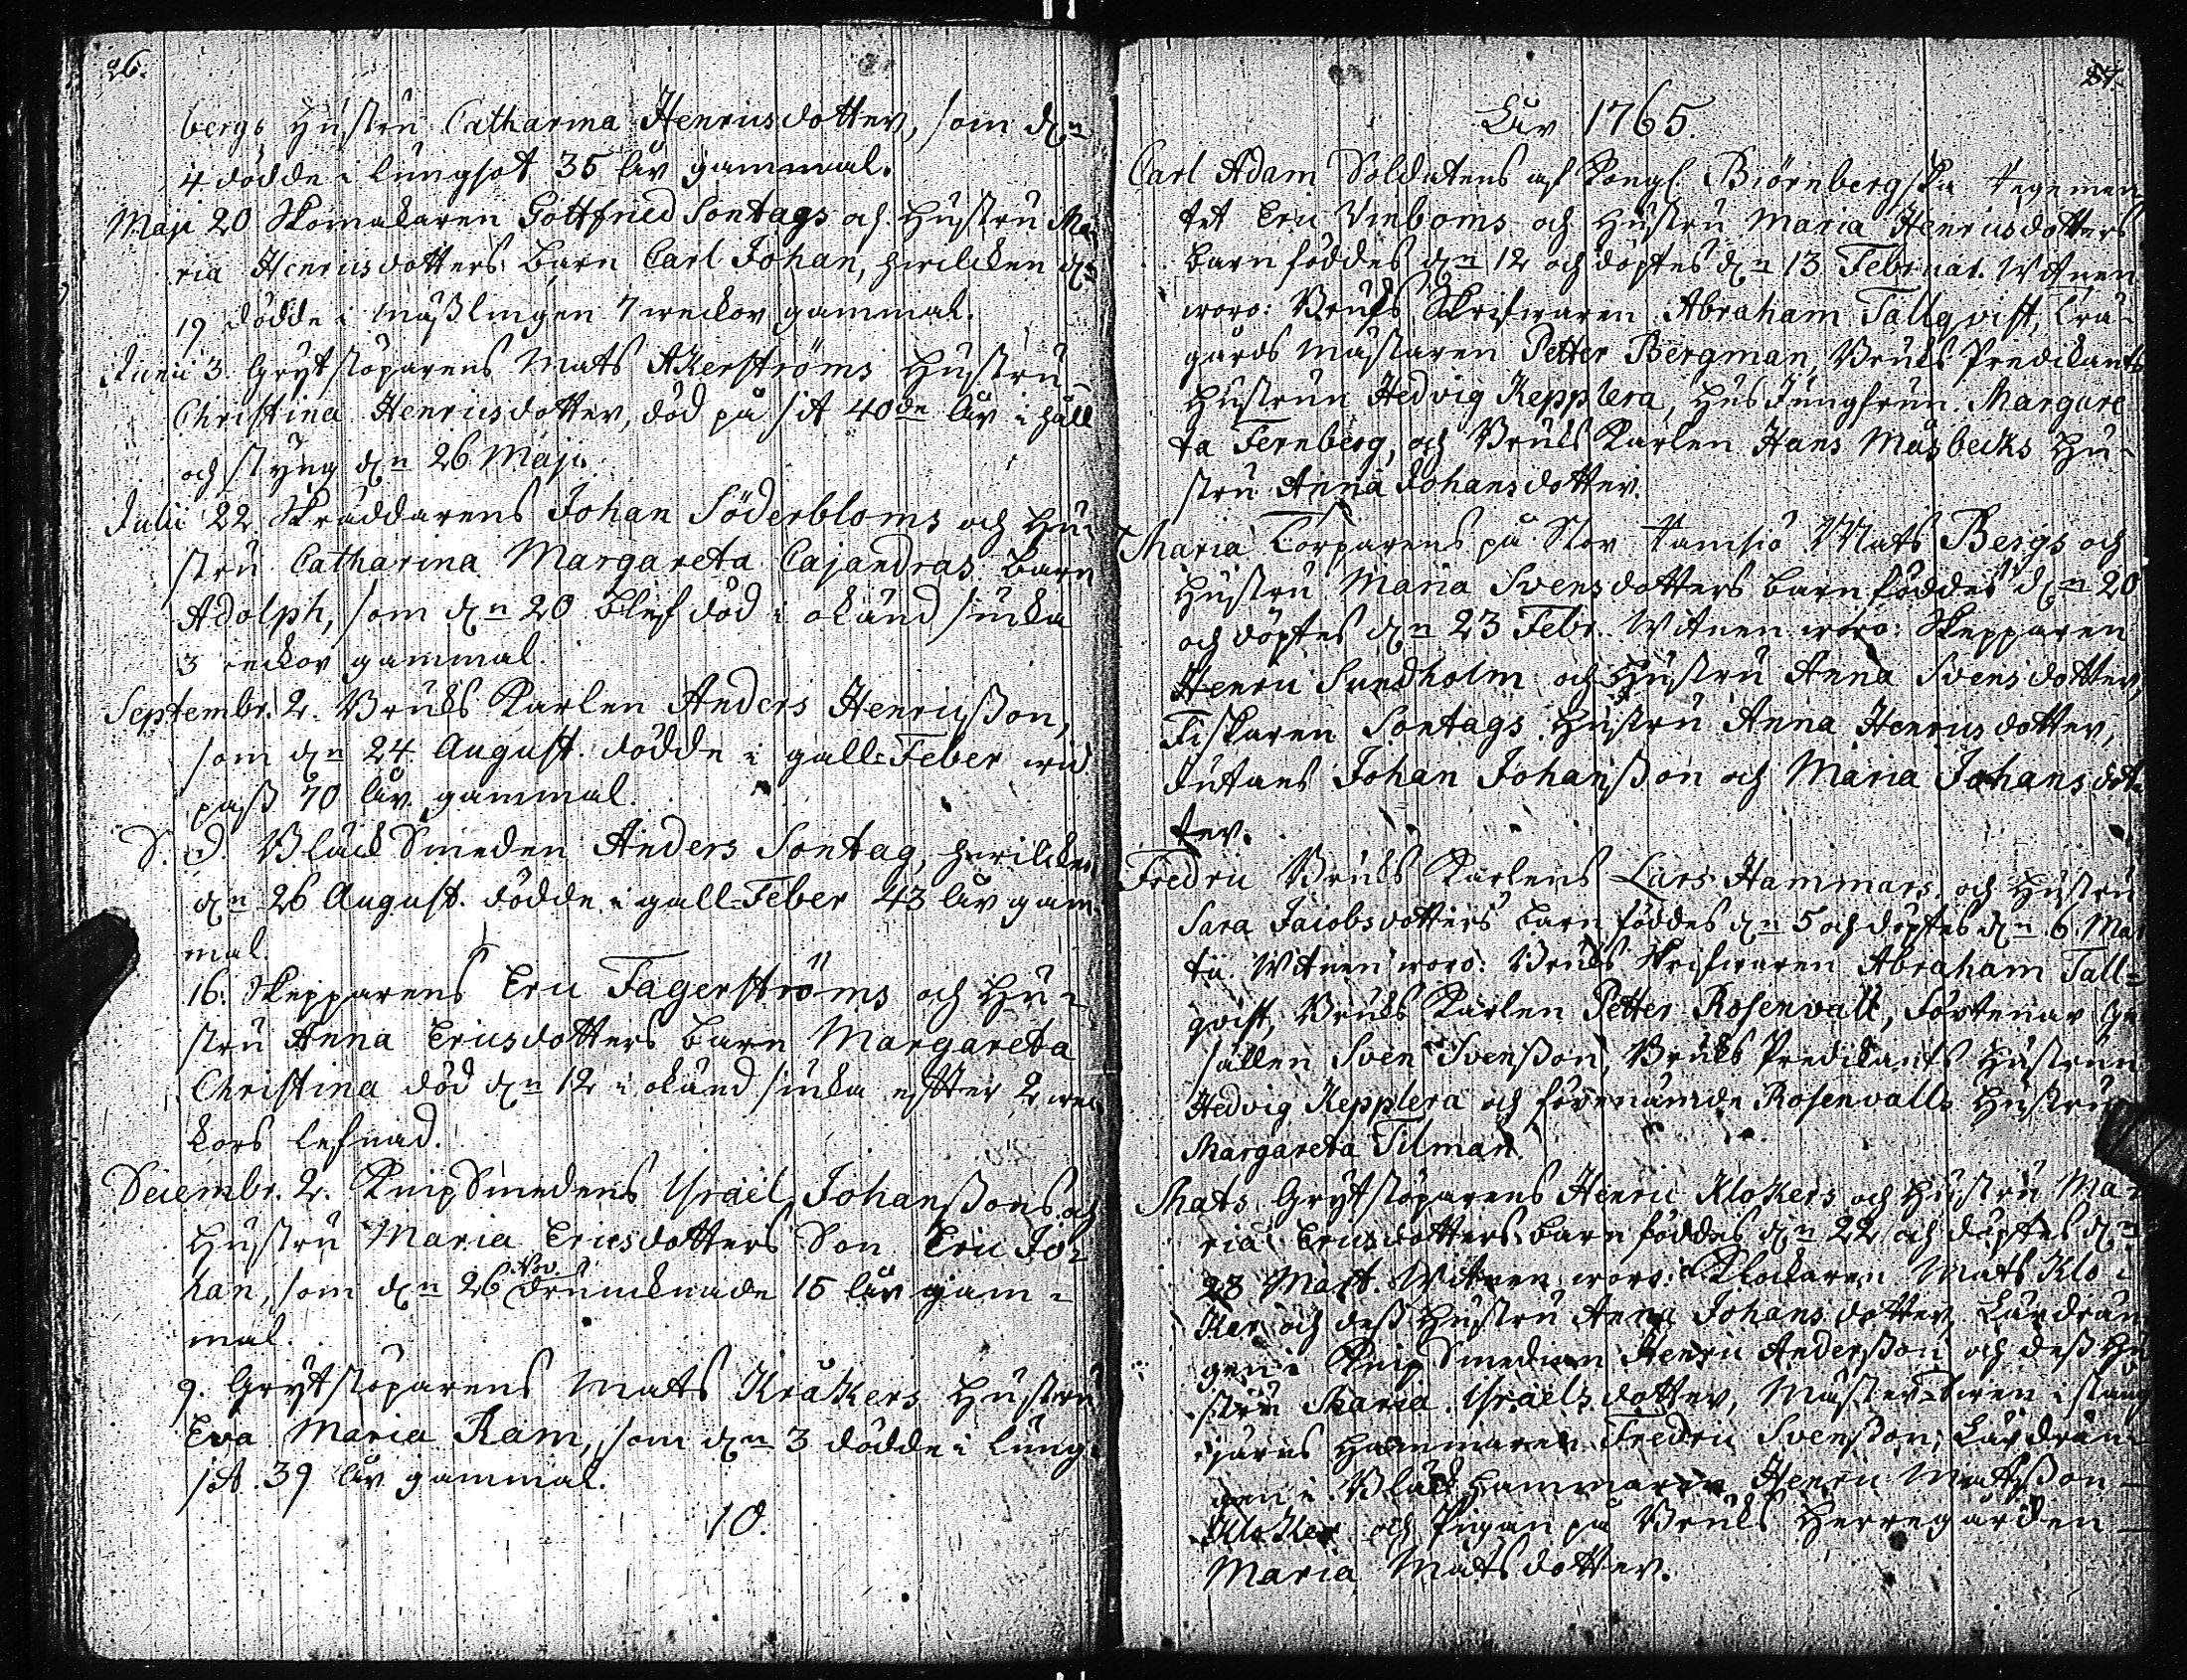 26.
bergs Hustru Catharina Henricsdotter, som d:n
4 dödde i lungsot 35 åhr gammal.
Maji 20 Skomakaren Gottfried Sontags och Hustru Ma
ria Henricsdotters barn Carl Johan, hwilcken d:n
19 dödde i mässlingen 7 weckor gammal.
Junii 3. Grytstöparens Mats Åkerströms Hustru
Christina Henricsdotter, död på sit 40de åhr i håll
och styng d:n 26 Maji.
Julii 22 Skräddarens Johan Söderbloms och Hu-
stru Catharina Margareta Cajandras barn
Adolph, som d:n 20 blef död i okänd siuka
3 weckor gammal.
Septembr. 2. Bruks Karlen Anders Henricsson,
som d:n 24 August. dödde i gall-Feber wid
pass 70 åhr gammal.
S. D. Bläck Smeden Anders Sontag, hwilcken
d:n 26 August. dödde i gall-Feber 43 åhr gam-
mal.
16. Skepparens Eric Fagerströms och Hu-
stru Anna Ericsdotters barn Margareta
Christina död d:n 12 i okänd siuka efter 2 wec
kors lefnad.
Decembr. 2. Knip Smedens Israel Johanssons och
Hustru Maria Ericsdotters Son Eric Jo-
han, som d:n 26 Nov. drunknade 15 åhr gam-
mal.
9. Grytstöparens Mats Kråkers Hustru
Eva Maria Ram, som d:n 3 dödde i lung-
sot 39 åhr gammal.
10.
27.
Åhr 1765.
Carl Adam Soldatens af Kongl. Biörnebergska Regemen
tet Eric Vinboms och Hustru Maria Henricsdotters
barn föddes d:n 12 och döptes d:n 13 Februar. Witnen
woro: Bruks Skrifwaren Abraham Tallqvist, Trä-
gårds Mästaren Petter Bergman, Bruks Predikants
Hustrun Hedvig Kepplera, Hus Jungfrun Margare
ta Fernberg, och Bruks Karlen Hans Måsbecks Hu-
stru Anna Johansdotter.
Maria Torparens på Stor Ramsiö Mats Bergs och
Hustru Maria Svensdotters barn föddes d:n 20
och döptes d:n 23 Febr. Witnen woro: Skepparen
Henric Sundholm och Hustru Anna Svensdotter,
Fiskaren Sontags Hustru Anna Henricsdotter,
Johan Johansson och Maria Johansdot-
ter.
Fredric Bruks Karlens Lars Hammars och Hustru
Sara Jacobsdotters barn föddes d:n 5 och döptes d:n 6 Mar
tii. Witnen woro: Bruks Skrifwaren Abraham Tall-
qvist, Bruks Karlen Petter Rosenvall, Ge
sällen Sven Svensson, Bruks Predikants Hustrun
Hedvig Kepplera och förenämde Rosenvalls Hustru
Margareta Tilman.
Mats Grytstöparens Henric Klokers och Hustru Ma-
ria Ericsdotters barn föddes d:n 22 och döptes d:n
23 Mart. Witnen woro: Klockaren Mats Klo-
ker och dess Hustru Anna Johansdotter, Lärdrän
gen i Knip Smedian Henric Andersson och dess Hu
stru Maria Israelsdotter, Mäster Swen i stång
järns Hammaren Fredric Svensson, Lärdrän-
gen i Bläck Hammaren Henric Matsson
Kloker och Pigan på Bruks Herregården
Maria Matsdotter.